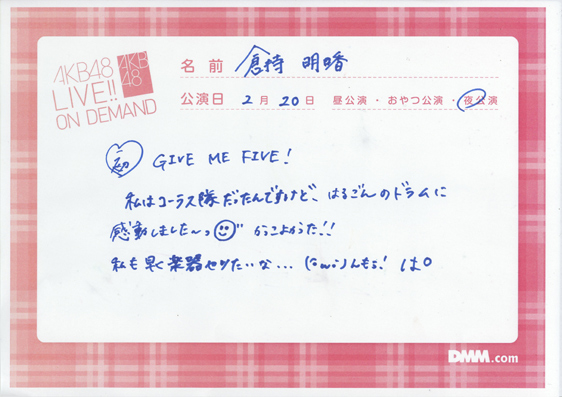 AKB48
LIVE!!
ON DEMAND
AKB
48
名前 倉持 明香
公演日 2月20日 昼公演・おやつ公演・夜公演
初 GIVE ME FIVE!
私はコーラス隊だったんですけど、はるごんのドラムに
感動しました〜っ かっこよかった!!
私も早く楽器やりたいな...
DMM.com